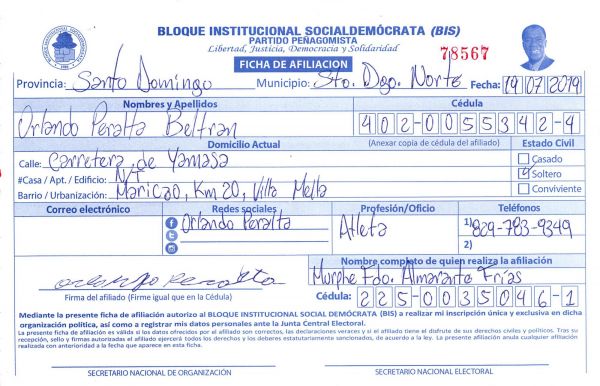 BLOQUE INSTITUCIONAL SOCIALDEMÓCRATA (BIS)
PARTIDO PEÑAGOMISTA
Libertad, Justicia, Democracia y Solidaridad
FICHA DE AFILIACION
78567
Provincia: Santo Domingo Municipio: Sto. Dgo. Norte Fecha: 19/07/2019
Nombres y Apellidos Cédula
Orlando Peralta Beltran 402-0055342-4
Domicilio Actual (Anexar copia de cédula del afiliado) Estado Civil
Calle: Carretera de Yamasa Casado
#Casa / Apt. / Edificio: N/T Soltero
Barrio / Urbanización: Maricao, Km 20, Villa Mella Conviviente
Correo electrónico Redes sociales Profesión/Oficio Teléfonos
Orlando Peralta Atleta 1) 829-783-9349
2)
Nombre completo de quien realiza la afiliación
Orlando Peralta Murphe Fdo. Almarante Frías
Firma del afiliado (Firme igual que en la Cédula) Cédula: 225-0035046-1
Mediante la presente ficha de afiliación autorizo al BLOQUE INSTITUCIONAL SOCIAL DEMÓCRATA (BIS) a realizar mi inscripción única y exclusiva en dicha
organización política, así como a registrar mis datos personales ante la Junta Central Electoral.
La presente ficha de afiliación es válida si los datos ofrecidos por el afiliado son correctos, las declaraciones veraces y si el afiliado tiene el disfrute de sus derechos civiles y políticos. Tras su
recepción, sello y firmas autorizadas el afiliado ejercerá todos los derechos y los deberes estatutariamente sancionados, de acuerdo a la ley. La presente afiliación anula cualquier afiliación
realizada con anterioridad a la fecha que aparece en esta ficha.
SECRETARIO NACIONAL DE ORGANIZACIÓN SECRETARIO NACIONAL ELECTORAL